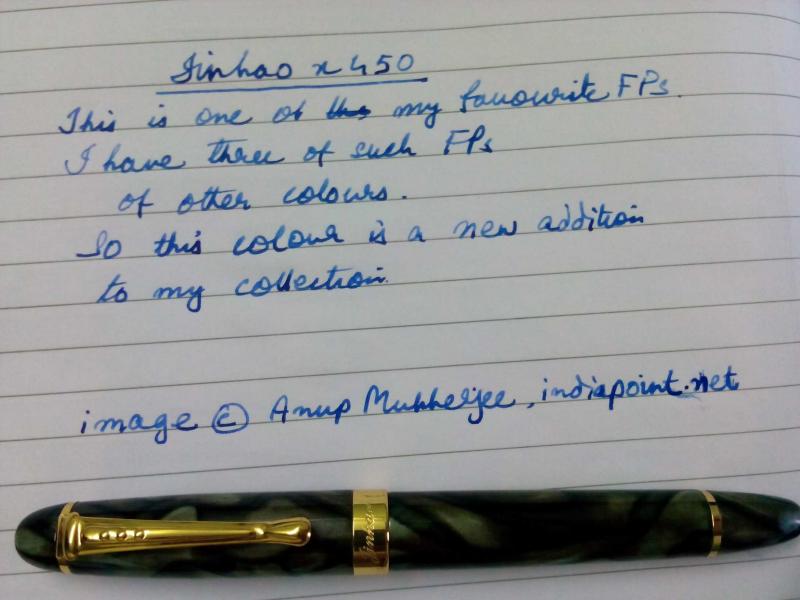 Jinhao x450
This is one of my favourite FPs.
I have three of such FPs
of other colours.
So this colour is a new addition
to my collection.
image © Anup Mukherjee, indiapoint.net
Jinhao